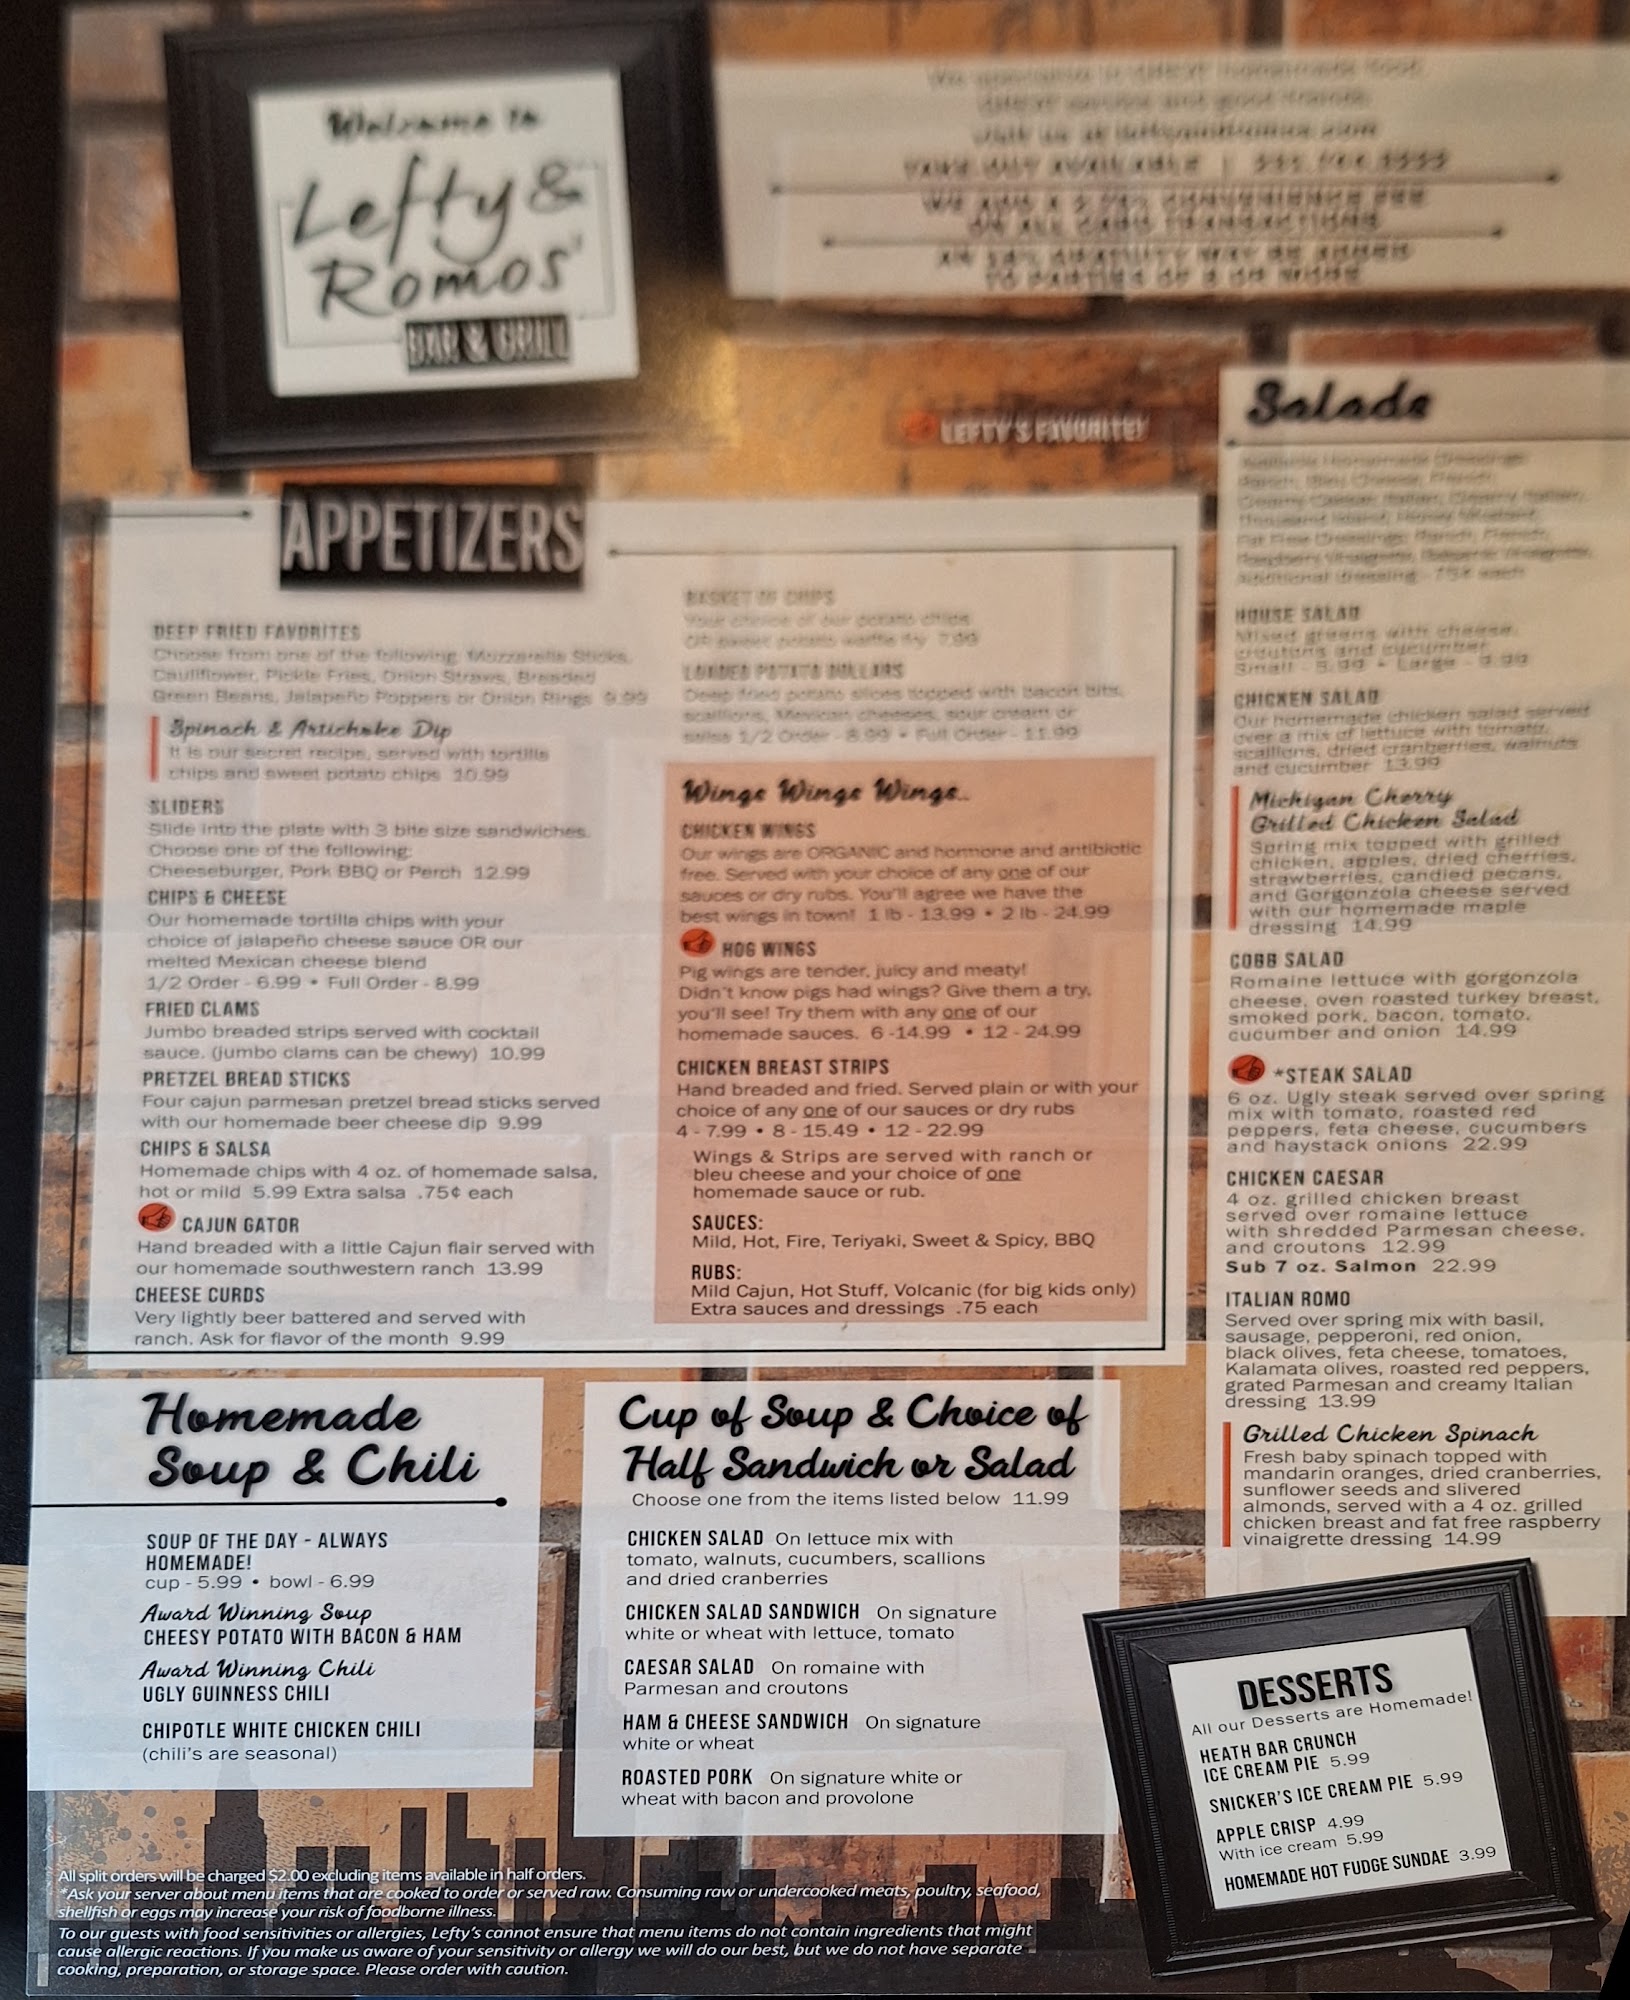 Welcome to
Lefty &
Romos'
BAR & GRILL
TAKE OUT AVAILABLE
ON ALL CARD TRANSACTIONS
TO PARTIES OF 8 OR MORE
LEFTY'S FAVORITE!
APPETIZERS
DEEP FRIED FAVORITES
Choose from one of the following: Mozzarella Sticks,
Cauliflower, Pickle Fries, Onion Straws, Breaded
Green Beans, Jalapeño Poppers or Onion Rings 9.99
Spinach & Artichoke Dip
It is our secret recipe, served with tortilla
chips and sweet potato chips 10.99
SLIDERS
Slide into the plate with 3 bite size sandwiches.
Choose one of the following:
Cheeseburger, Pork BBQ or Perch 12.99
CHIPS & CHEESE
Our homemade tortilla chips with your
choice of jalapeño cheese sauce OR our
melted Mexican cheese blend
1/2 Order - 6.99 • Full Order - 8.99
FRIED CLAMS
Jumbo breaded strips served with cocktail
sauce. (jumbo clams can be chewy) 10.99
PRETZEL BREAD STICKS
Four cajun parmesan pretzel bread sticks served
with our homemade beer cheese dip 9.99
CHIPS & SALSA
Homemade chips with 4 oz. of homemade salsa,
hot or mild 5.99 Extra salsa .75¢ each
CAJUN GATOR
Hand breaded with a little Cajun flair served with
our homemade southwestern ranch 13.99
CHEESE CURDS
Very lightly beer battered and served with
ranch. Ask for flavor of the month 9.99
BASKET OF CHIPS
Your choice of our potato chips
OR sweet potato waffle fry 7.99
LOADED POTATO DOLLARS
Deep fried potato slices topped with bacon bits,
scallions, Mexican cheeses, sour cream or
salsa 1/2 Order - 8.99 • Full Order - 11.99
Wings Wings Wings..
CHICKEN WINGS
Our wings are ORGANIC and hormone and antibiotic
free. Served with your choice of any one of our
sauces or dry rubs. You'll agree we have the
best wings in town! 1 lb - 13.99 • 2 lb - 24.99
HOG WINGS
Pig wings are tender, juicy and meaty!
Didn't know pigs had wings? Give them a try,
you'll see! Try them with any one of our
homemade sauces. 6 -14.99 • 12 - 24.99
CHICKEN BREAST STRIPS
Hand breaded and fried. Served plain or with your
choice of any one of our sauces or dry rubs
4 - 7.99 • 8 - 15.49 • 12 - 22.99
Wings & Strips are served with ranch or
bleu cheese and your choice of one
homemade sauce or rub.
SAUCES:
Mild, Hot, Fire, Teriyaki, Sweet & Spicy, BBQ
RUBS:
Mild Cajun, Hot Stuff, Volcanic (for big kids only)
Extra sauces and dressings .75 each
Salads
Additional dressing - 75¢ each
HOUSE SALAD
Mixed greens with cheese,
croutons and cucumber
CHICKEN SALAD
Our homemade chicken salad served
over a mix of lettuce with tomato,
scallions, dried cranberries, walnuts
and cucumber 13.99
Michigan Cherry
Grilled Chicken Salad
Spring mix topped with grilled
chicken, apples, dried cherries,
strawberries, candied pecans,
and Gorgonzola cheese served
with our homemade maple
dressing 14.99
COBB SALAD
Romaine lettuce with gorgonzola
cheese, oven roasted turkey breast,
smoked pork, bacon, tomato,
cucumber and onion 14.99
*STEAK SALAD
6 oz. Ugly steak served over spring
mix with tomato, roasted red
peppers, feta cheese, cucumbers
and haystack onions 22.99
CHICKEN CAESAR
4 oz. grilled chicken breast
served over romaine lettuce
with shredded Parmesan cheese,
and croutons 12.99
Sub 7 oz. Salmon 22.99
ITALIAN ROMO
Served over spring mix with basil,
sausage, pepperoni, red onion,
black olives, feta cheese, tomatoes,
Kalamata olives, roasted red peppers,
grated Parmesan and creamy Italian
dressing 13.99
Grilled Chicken Spinach
Fresh baby spinach topped with
mandarin oranges, dried cranberries,
sunflower seeds and slivered
almonds, served with a 4 oz. grilled
chicken breast and fat free raspberry
vinaigrette dressing 14.99
Homemade
Soup & Chili
SOUP OF THE DAY - ALWAYS
HOMEMADE!
cup - 5.99 • bowl - 6.99
Award Winning Soup
CHEESY POTATO WITH BACON & HAM
Award Winning Chili
UGLY GUINNESS CHILI
CHIPOTLE WHITE CHICKEN CHILI
(chili's are seasonal)
Cup of Soup & Choice of
Half Sandwich or Salad
Choose one from the items listed below 11.99
CHICKEN SALAD On lettuce mix with
tomato, walnuts, cucumbers, scallions
and dried cranberries
CHICKEN SALAD SANDWICH On signature
white or wheat with lettuce, tomato
CAESAR SALAD On romaine with
Parmesan and croutons
HAM & CHEESE SANDWICH On signature
white or wheat
ROASTED PORK On signature white or
wheat with bacon and provolone
DESSERTS
All our Desserts are Homemade!
HEATH BAR CRUNCH
ICE CREAM PIE 5.99
SNICKER'S ICE CREAM PIE 5.99
APPLE CRISP 4.99
With ice cream 5.99
HOMEMADE HOT FUDGE SUNDAE 3.99
All split orders will be charged $2.00 excluding items available in half orders.
*Ask your server about menu items that are cooked to order or served raw. Consuming raw or undercooked meats, poultry, seafood,
shellfish or eggs may increase your risk of foodborne illness.
To our guests with food sensitivities or allergies, Lefty's cannot ensure that menu items do not contain ingredients that might
cause allergic reactions. If you make us aware of your sensitivity or allergy we will do our best, but we do not have separate
cooking, preparation, or storage space. Please order with caution.